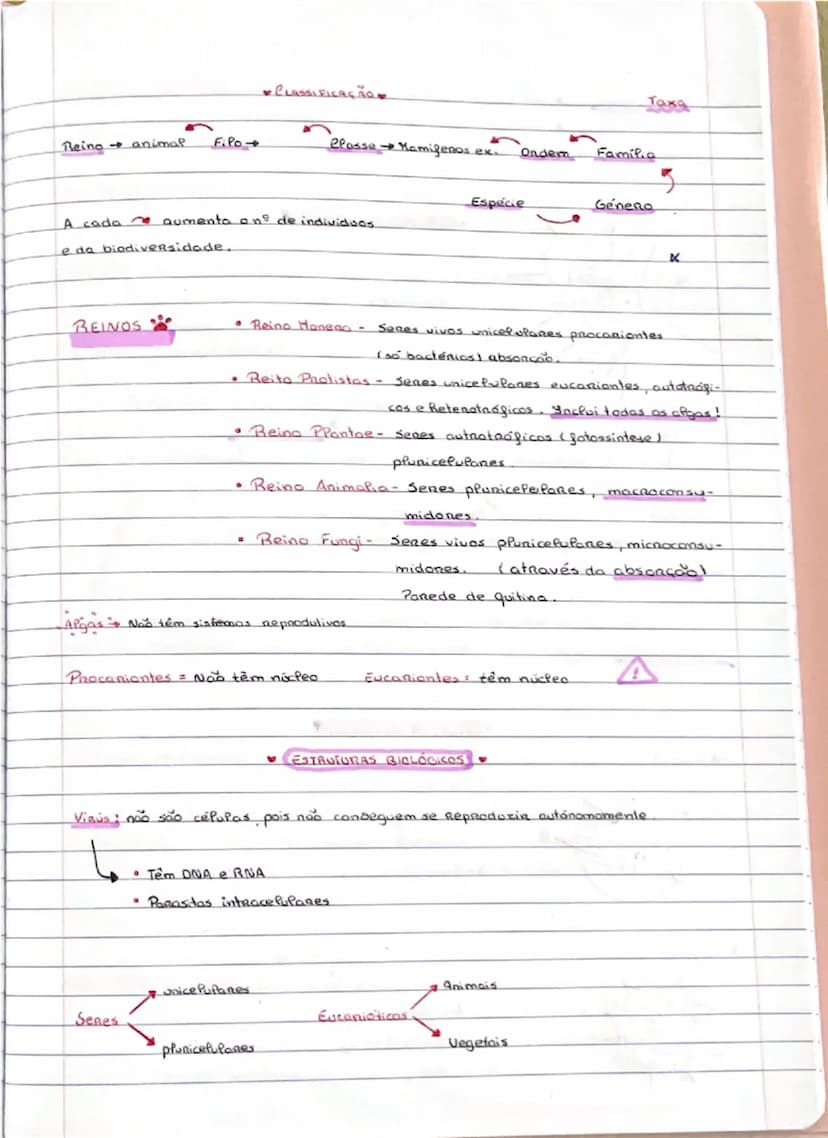 ♥ Classificação ♥
Taxa
Reino → animal Filo → Classe → Mamíferos ex. Ordem Família
Espécie Género
A cada aumenta o nº de indivíduos
e da biodiversidade.
REINOS
• Reino Monera - Seres vivos unicelulares procariontes
(só bactérias) absorção.
• Reito Protistas - Seres unicelulares eucariontes, autotrófi-
cos e heterotróficos. Inclui todas as algas!
• Reino Plantae - Seres autrotróficos (fotossíntese)
pluricelulares
• Reino Animalia - Seres pluricelelares, macroconsu-
midores.
• Reino Fungi - Seres vivos pluricelulares, microconsu-
midores. (através da absorção)
Parede de quitina.
Algas → Não têm sistemas reprodutivos
Procariontes = Não têm núcleo Eucariontes : têm núcleo !
♥ ESTRUTURAS BIOLÓGICOS ♥
Virús : não são células, pois não conseguem se reproduzir autónomamente.
• Têm DNA e RNA
• Parasitas intracelulares
unicelulares Animais
Seres Eucarióticos
pluricelulares Vegetais